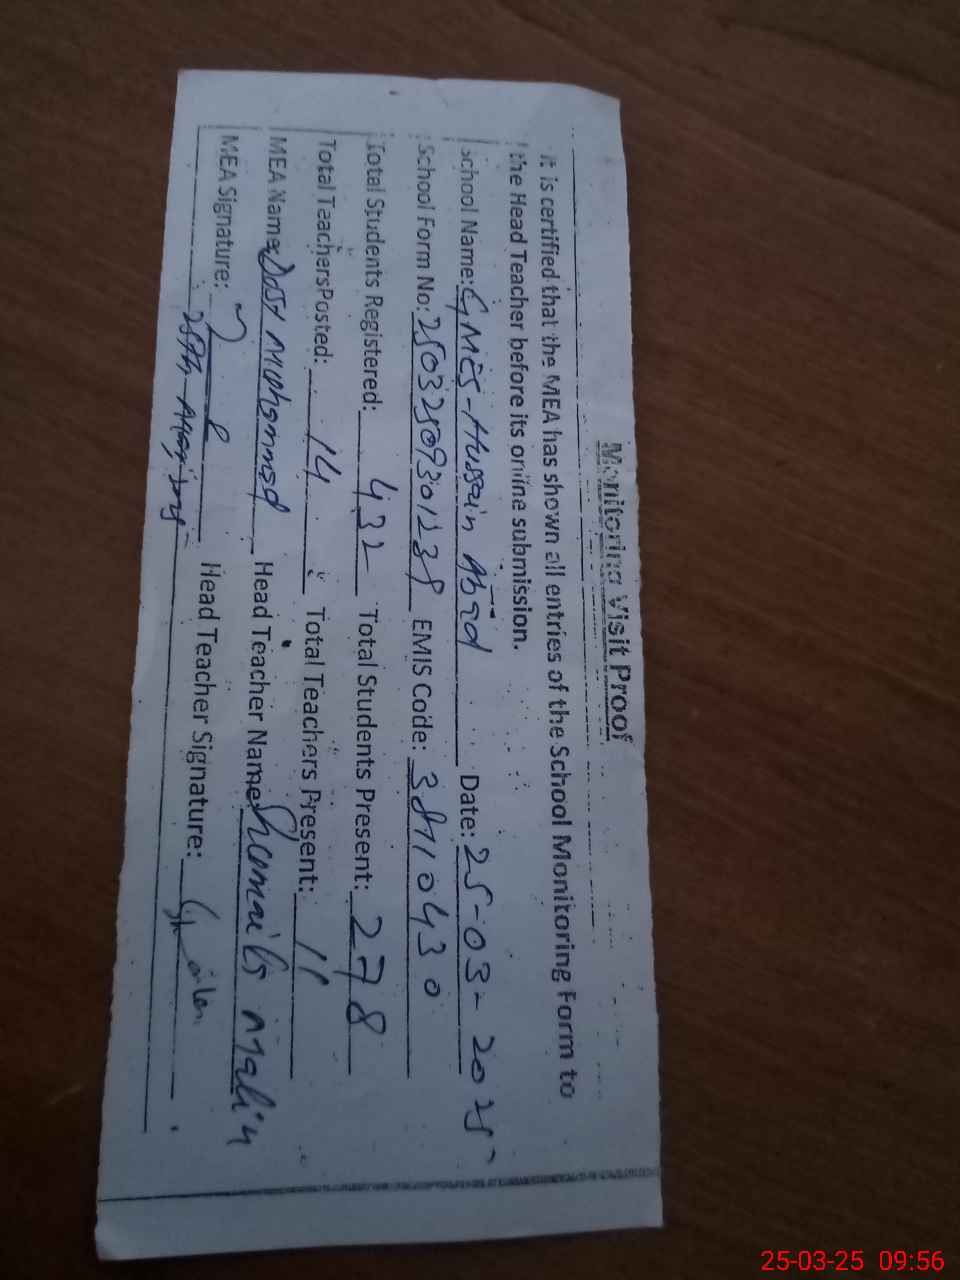 Monitoring Visit Proof
It is certified that the MEA has shown all entries of the School Monitoring Form to
the Head Teacher before its online submission.
School Name: GMES-Hussain Abad Date: 25-03-2025
School Form No: EMIS Code: 38110430
Total Students Registered: 432 Total Students Present: 278
Total Teachers Posted: 14 Total Teachers Present: 11
MEA Name: Dost Muhammad Head Teacher Name: Shumaila Malik
MEA Signature: Head Teacher Signature:
25-03-25 09:56